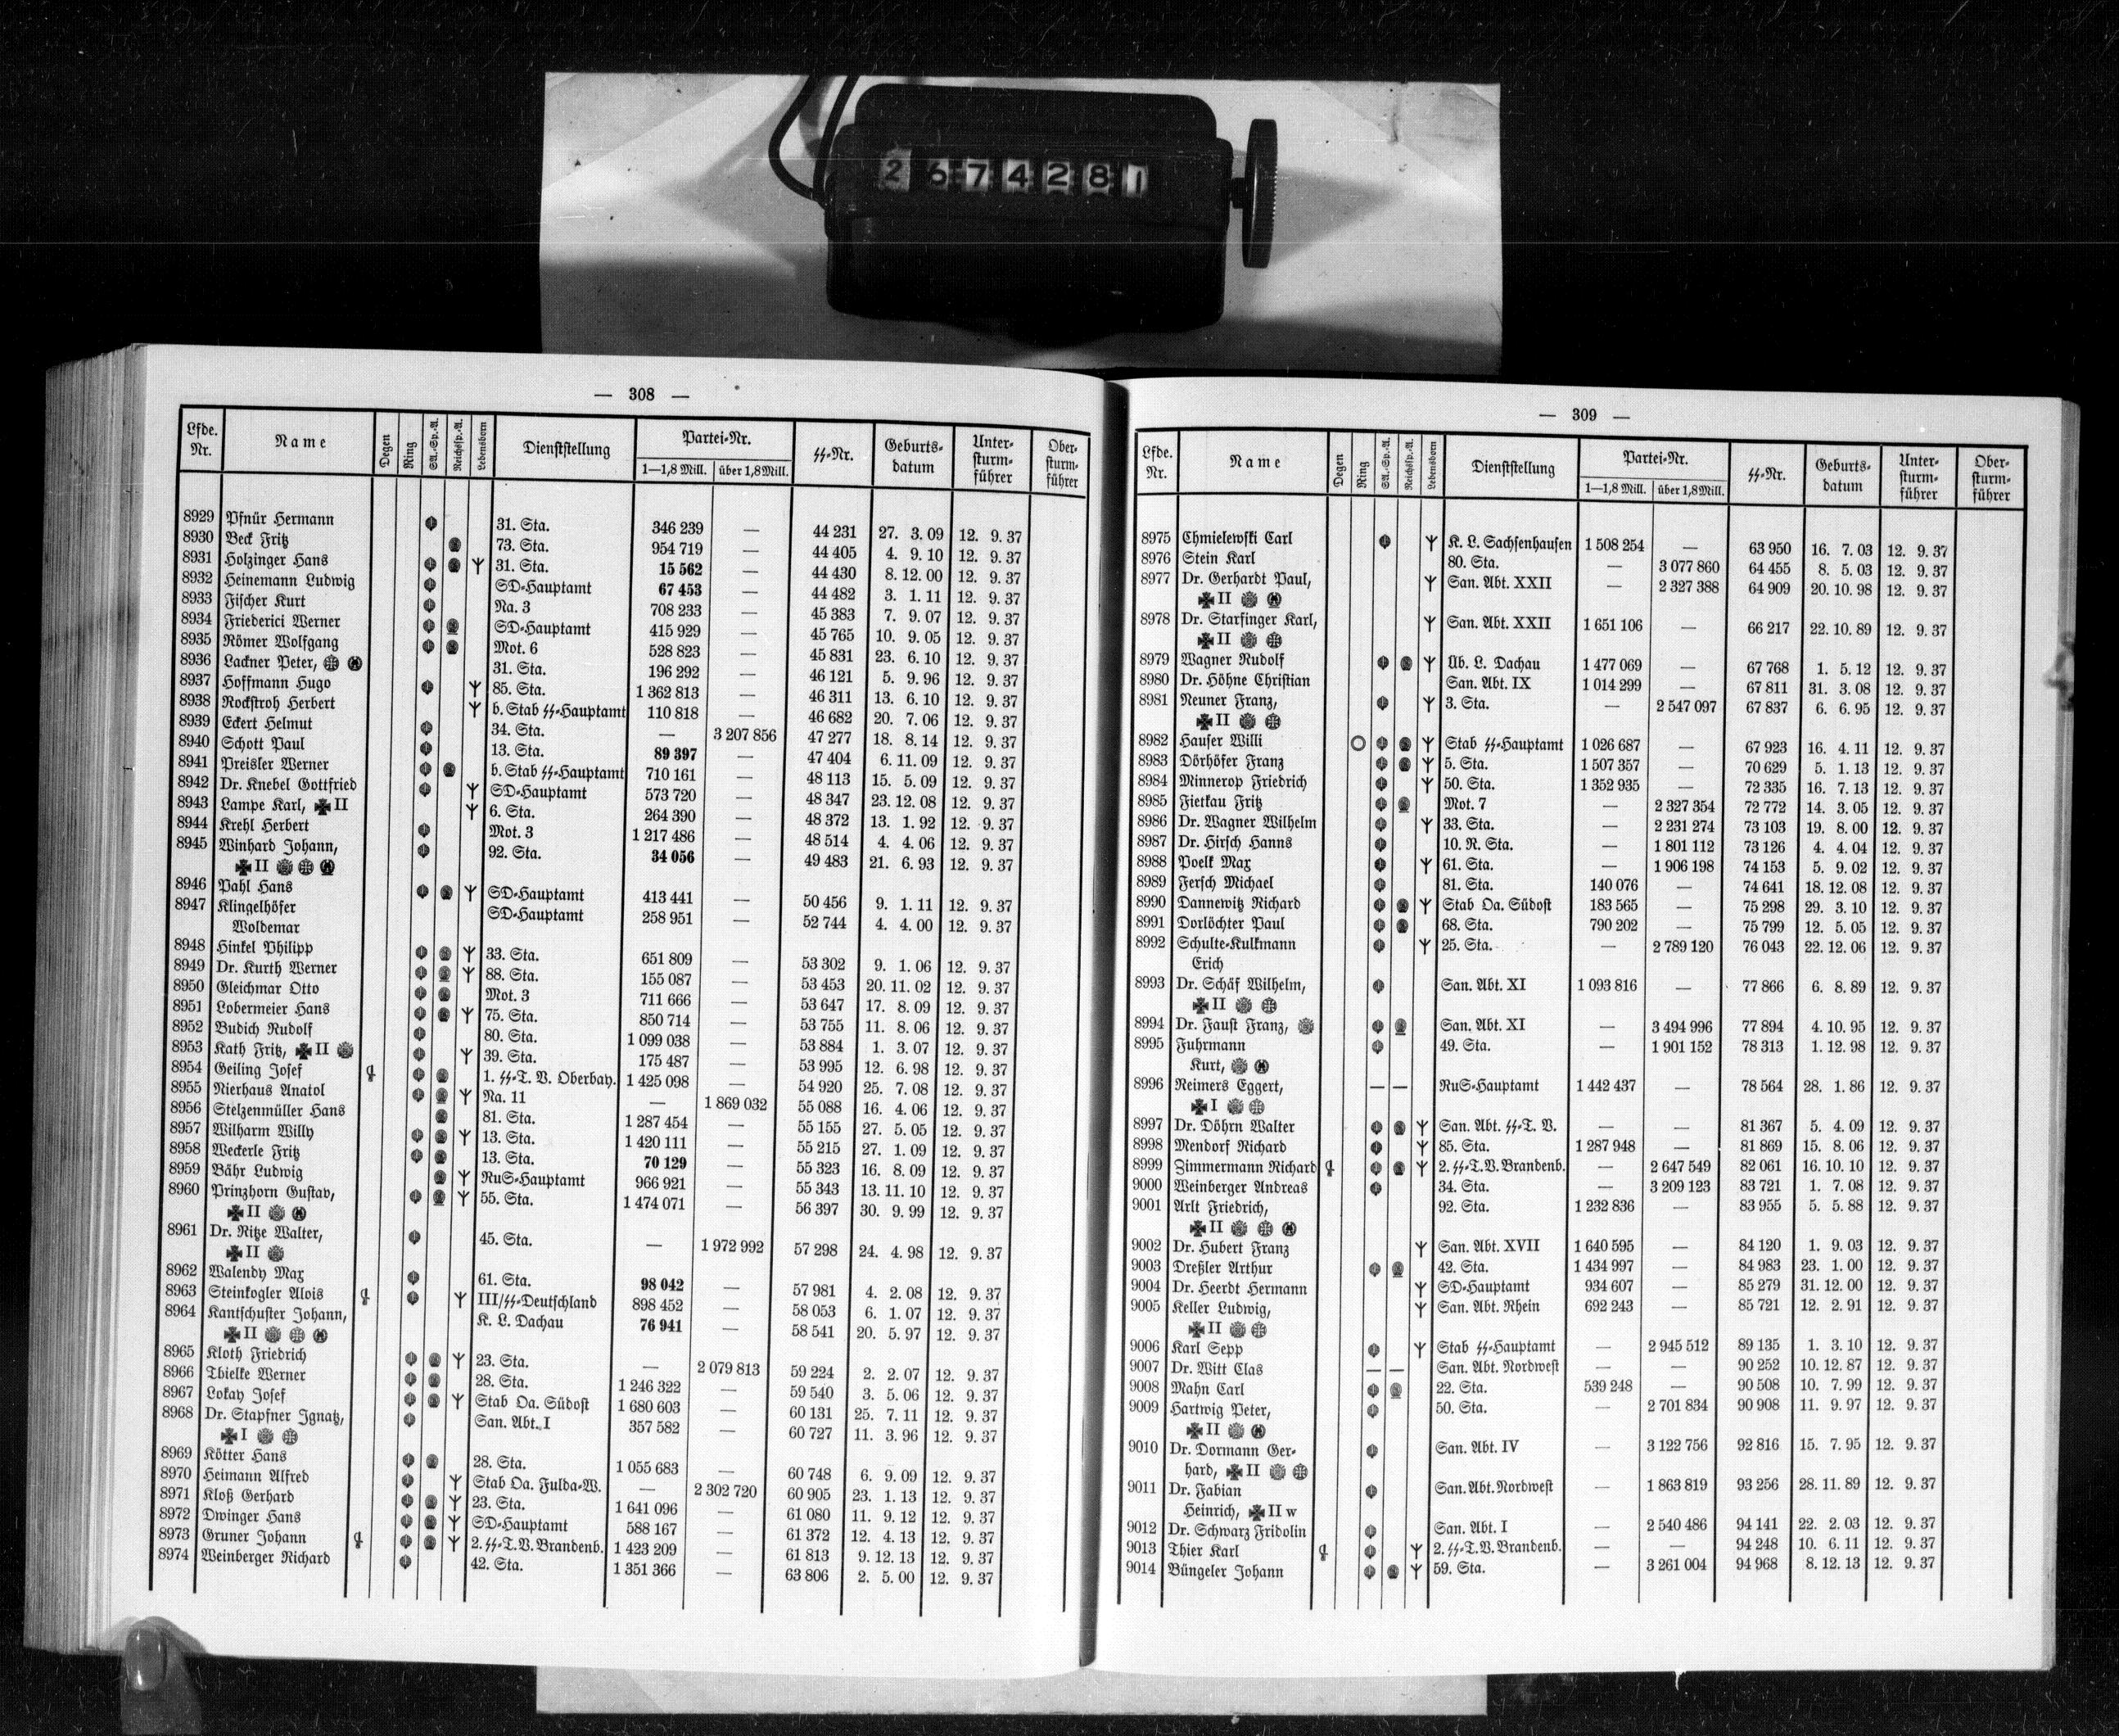 2674281
— 308 —
Lfde. Nr. Name Degen Ring SA.-Sp.-A. Reichssp.-A. Lebensborn Dienststellung Partei-Nr. 1—1,8 Mill. über 1,8 Mill. ᛋᛋ-Nr. Geburts-datum Unter-sturm-führer Ober-sturm-führer
8929 Pfnür Hermann 31. Sta. 346 239 — 44 231 27. 3. 09 12. 9. 37
8930 Beck Fritz 73. Sta. 954 719 — 44 405 4. 9. 10 12. 9. 37
8931 Holzinger Hans 31. Sta. 15 562 — 44 430 8. 12. 00 12. 9. 37
8932 Heinemann Ludwig SD-Hauptamt 67 453 — 44 482 3. 1. 11 12. 9. 37
8933 Fischer Kurt Na. 3 708 233 — 45 383 7. 9. 07 12. 9. 37
8934 Friederici Werner SD-Hauptamt 415 929 — 45 765 10. 9. 05 12. 9. 37
8935 Römer Wolfgang Mot. 6 528 823 — 45 831 23. 6. 10 12. 9. 37
8936 Lackner Peter, 31. Sta. 196 292 — 46 121 5. 9. 96 12. 9. 37
8937 Hoffmann Hugo 85. Sta. 1 362 813 — 46 311 13. 6. 10 12. 9. 37
8938 Rockstroh Herbert b. Stab ᛋᛋ-Hauptamt 110 818 — 46 682 20. 7. 06 12. 9. 37
8939 Eckert Helmut 34. Sta. — 3 207 856 47 277 18. 8. 14 12. 9. 37
8940 Schott Paul 13. Sta. 89 397 — 47 404 6. 11. 09 12. 9. 37
8941 Preisler Werner b. Stab ᛋᛋ-Hauptamt 710 161 — 48 113 15. 5. 09 12. 9. 37
8942 Dr. Knebel Gottfried SD-Hauptamt 573 720 — 48 347 23. 12. 08 12. 9. 37
8943 Lampe Karl, II 6. Sta. 264 390 — 48 372 13. 1. 92 12. 9. 37
8944 Krehl Herbert Mot. 3 1 217 486 — 48 514 4. 4. 06 12. 9. 37
8945 Winhard Johann, 92. Sta. 34 056 — 49 483 21. 6. 93 12. 9. 37
II
8946 Pahl Hans SD-Hauptamt 413 441 — 50 456 9. 1. 11 12. 9. 37
8947 Klingelhöfer SD-Hauptamt 258 951 — 52 744 4. 4. 00 12. 9. 37
Woldemar
8948 Hinkel Philipp 33. Sta. 651 809 — 53 302 9. 1. 06 12. 9. 37
8949 Dr. Kurth Werner 88. Sta. 155 087 — 53 453 20. 11. 02 12. 9. 37
8950 Gleichmar Otto Mot. 3 711 666 — 53 647 17. 8. 09 12. 9. 37
8951 Lobermeier Hans 75. Sta. 850 714 — 53 755 11. 8. 06 12. 9. 37
8952 Budich Rudolf 80. Sta. 1 099 038 — 53 884 1. 3. 07 12. 9. 37
8953 Kath Fritz, II 39. Sta. 175 487 — 53 995 12. 6. 98 12. 9. 37
8954 Geiling Josef 1. ᛋᛋ-T. V. Oberbay. 1 425 098 — 54 920 25. 7. 08 12. 9. 37
8955 Nierhaus Anatol Na. 11 — 1 869 032 55 088 16. 4. 06 12. 9. 37
8956 Stelzenmüller Hans 81. Sta. 1 287 454 — 55 155 27. 5. 05 12. 9. 37
8957 Wilharm Willy 13. Sta. 1 420 111 — 55 215 27. 1. 09 12. 9. 37
8958 Weckerle Fritz 13. Sta. 70 129 — 55 323 16. 8. 09 12. 9. 37
8959 Bähr Ludwig RuS-Hauptamt 966 921 — 55 343 13. 11. 10 12. 9. 37
8960 Prinzhorn Gustav, 55. Sta. 1 474 071 — 56 397 30. 9. 99 12. 9. 37
II
8961 Dr. Ritze Walter, 45. Sta. — 1 972 992 57 298 24. 4. 98 12. 9. 37
II
8962 Walendy Max 61. Sta. 98 042 — 57 981 4. 2. 08 12. 9. 37
8963 Steinkogler Alois III/ᛋᛋ-Deutschland 898 452 — 58 053 6. 1. 07 12. 9. 37
8964 Kantschuster Johann, K. L. Dachau 76 941 — 58 541 20. 5. 97 12. 9. 37
II
8965 Kloth Friedrich 23. Sta. — 2 079 813 59 224 2. 2. 07 12. 9. 37
8966 Thielke Werner 28. Sta. 1 246 322 — 59 540 3. 5. 06 12. 9. 37
8967 Lokay Josef Stab Oa. Südost 1 680 603 — 60 131 25. 7. 11 12. 9. 37
8968 Dr. Stapfner Ignatz, San. Abt. I 357 582 — 60 727 11. 3. 96 12. 9. 37
I
8969 Kötter Hans 28. Sta. 1 055 683 — 60 748 6. 9. 09 12. 9. 37
8970 Heimann Alfred Stab Oa. Fulda-W. — 2 302 720 60 905 23. 1. 13 12. 9. 37
8971 Kloß Gerhard 23. Sta. 1 641 096 — 61 080 11. 9. 12 12. 9. 37
8972 Dwinger Hans SD-Hauptamt 588 167 — 61 372 12. 4. 13 12. 9. 37
8973 Gruner Johann 2. ᛋᛋ-T. V. Brandenb. 1 423 209 — 61 813 9. 12. 13 12. 9. 37
8974 Weinberger Richard 42. Sta. 1 351 366 — 63 806 2. 5. 00 12. 9. 37
— 309 —
Lfde. Nr. Name Degen Ring SA.-Sp.-A. Reichssp.-A. Lebensborn Dienststellung Partei-Nr. 1—1,8 Mill. über 1,8 Mill. ᛋᛋ-Nr. Geburts-datum Unter-sturm-führer Ober-sturm-führer
8975 Chmielewski Carl K. L. Sachsenhausen 1 508 254 — 63 950 16. 7. 03 12. 9. 37
8976 Stein Karl 80. Sta. — 3 077 860 64 455 8. 5. 03 12. 9. 37
8977 Dr. Gerhardt Paul, San. Abt. XXII — 2 327 388 64 909 20. 10. 98 12. 9. 37
II
8978 Dr. Starfinger Karl, San. Abt. XXII 1 651 106 — 66 217 22. 10. 89 12. 9. 37
II
8979 Wagner Rudolf Üb. L. Dachau 1 477 069 — 67 768 1. 5. 12 12. 9. 37
8980 Dr. Höhne Christian San. Abt. IX 1 014 299 — 67 811 31. 3. 08 12. 9. 37
8981 Neuner Franz, 3. Sta. — 2 547 097 67 837 6. 6. 95 12. 9. 37
II
8982 Hauser Willi Stab ᛋᛋ-Hauptamt 1 026 687 — 67 923 16. 4. 11 12. 9. 37
8983 Dörhöfer Franz 5. Sta. 1 507 357 — 70 629 5. 1. 13 12. 9. 37
8984 Minnerop Friedrich 50. Sta. 1 352 935 — 72 335 16. 7. 13 12. 9. 37
8985 Fietkau Fritz Mot. 7 — 2 327 354 72 772 14. 3. 05 12. 9. 37
8986 Dr. Wagner Wilhelm 33. Sta. — 2 231 274 73 103 19. 8. 00 12. 9. 37
8987 Dr. Hirsch Hanns 10. R. Sta. — 1 801 112 73 126 4. 4. 04 12. 9. 37
8988 Poelk Max 61. Sta. — 1 906 198 74 153 5. 9. 02 12. 9. 37
8989 Fersch Michael 81. Sta. 140 076 — 74 641 18. 12. 08 12. 9. 37
8990 Dannewitz Richard Stab Oa. Südost 183 565 — 75 298 29. 3. 10 12. 9. 37
8991 Dorlöchter Paul 68. Sta. 790 202 — 75 799 12. 5. 05 12. 9. 37
8992 Schulte-Kulkmann 25. Sta. — 2 789 120 76 043 22. 12. 06 12. 9. 37
Erich
8993 Dr. Schäf Wilhelm, San. Abt. XI 1 093 816 — 77 866 6. 8. 89 12. 9. 37
II
8994 Dr. Faust Franz, San. Abt. XI — 3 494 996 77 894 4. 10. 95 12. 9. 37
8995 Fuhrmann 49. Sta. — 1 901 152 78 313 1. 12. 98 12. 9. 37
Kurt,
8996 Reimers Eggert, — — RuS-Hauptamt 1 442 437 — 78 564 28. 1. 86 12. 9. 37
I
8997 Dr. Döhrn Walter San. Abt. ᛋᛋ-T. V. — — 81 367 5. 4. 09 12. 9. 37
8998 Mendorf Richard 85. Sta. 1 287 948 — 81 869 15. 8. 06 12. 9. 37
8999 Zimmermann Richard 2. ᛋᛋ-T. V. Brandenb. — 2 647 549 82 061 16. 10. 10 12. 9. 37
9000 Weinberger Andreas 34. Sta. — 3 209 123 83 721 1. 7. 08 12. 9. 37
9001 Arlt Friedrich, 92. Sta. 1 232 836 — 83 955 5. 5. 88 12. 9. 37
II
9002 Dr. Hubert Franz San. Abt. XVII 1 640 595 — 84 120 1. 9. 03 12. 9. 37
9003 Dreßler Arthur 42. Sta. 1 434 997 — 84 983 23. 1. 00 12. 9. 37
9004 Dr. Heerdt Hermann SD-Hauptamt 934 607 — 85 279 31. 12. 00 12. 9. 37
9005 Keller Ludwig, San. Abt. Rhein 692 243 — 85 721 12. 2. 91 12. 9. 37
II
9006 Karl Sepp Stab ᛋᛋ-Hauptamt — 2 945 512 89 135 1. 3. 10 12. 9. 37
9007 Dr. Witt Clas — — San. Abt. Nordwest — — 90 252 10. 12. 87 12. 9. 37
9008 Mahn Carl 22. Sta. 539 248 — 90 508 10. 7. 99 12. 9. 37
9009 Hartwig Peter, 50. Sta. — 2 701 834 90 908 11. 9. 97 12. 9. 37
II
9010 Dr. Dormann Ger- San. Abt. IV — 3 122 756 92 816 15. 7. 95 12. 9. 37
hard, II
9011 Dr. Fabian San. Abt. Nordwest — 1 863 819 93 256 28. 11. 89 12. 9. 37
Heinrich, II w
9012 Dr. Schwarz Fridolin San. Abt. I — 2 540 486 94 141 22. 2. 03 12. 9. 37
9013 Thier Karl 2. ᛋᛋ-T. V. Brandenb. — — 94 248 10. 6. 11 12. 9. 37
9014 Büngeler Johann 59. Sta. — 3 261 004 94 968 8. 12. 13 12. 9. 37